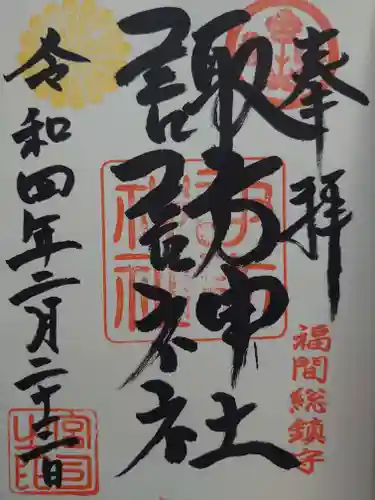 奉拝
諏訪神社
福間総鎮守
令和四年二月二十三日